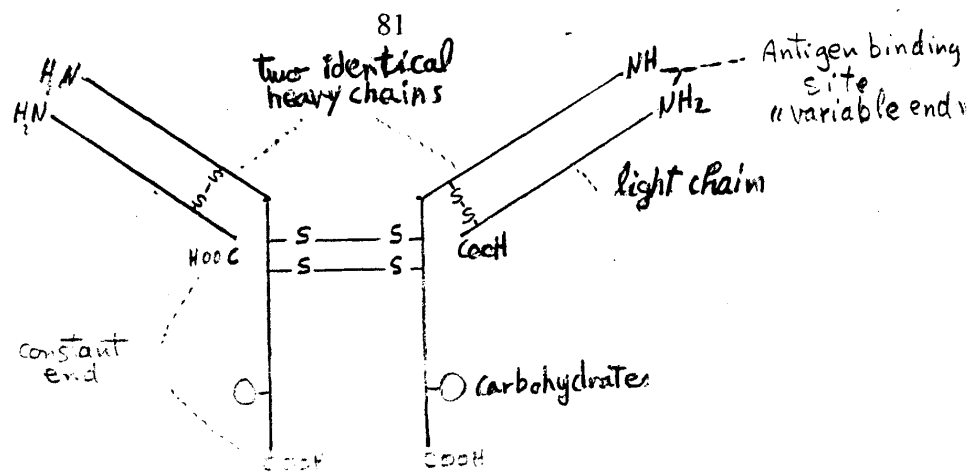 81
two identical
heavy chains
H₂N
H₂N
NH
NH2
Antigen binding
site
"variable end"
light chain
S-S
S-S
S S
S S
HOOC
CooH
constant
end
Carbohydrates
COOH
COOH